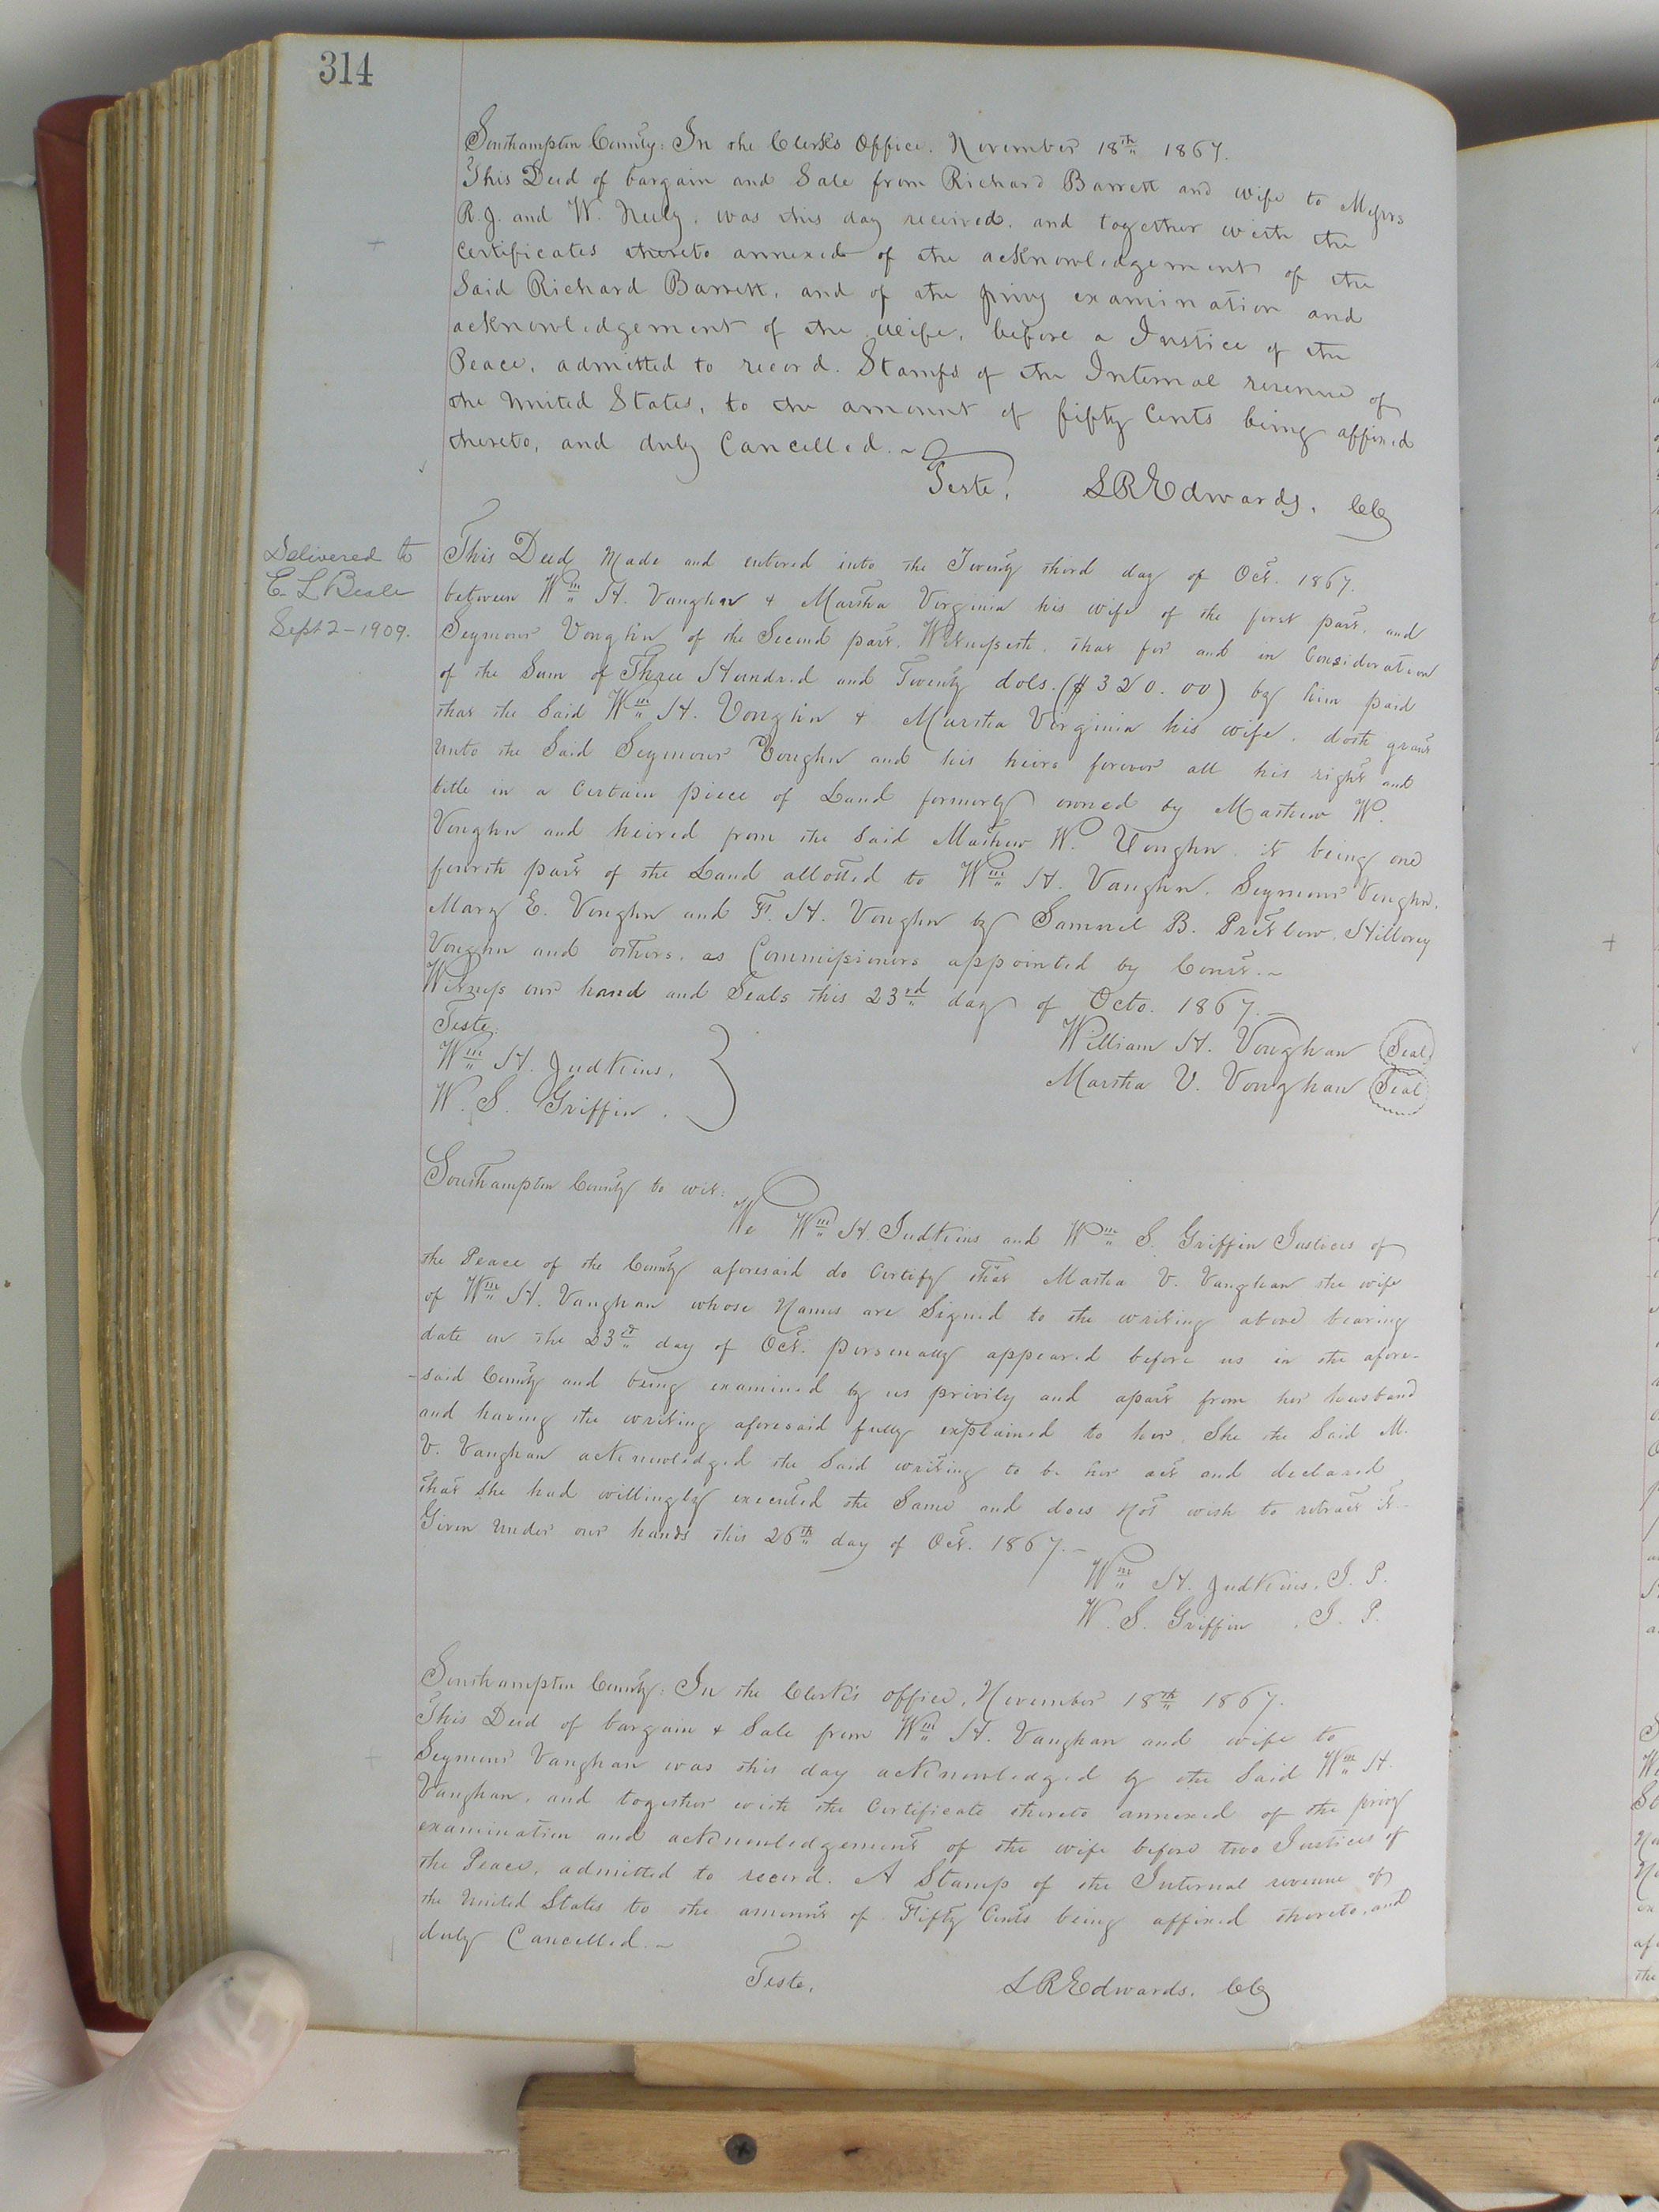 314
Southampton County: In the Clerk's Office. November 18th 1867.
This Deed of bargain and Sale from Richard Barrett and wife to Messrs
R. J. and W. Neely, was this day received, and together with the
Certificates thereto annexed of the acknowledgement of the
Said Richard Barrett, and of the privy examination and
acknowledgement of the wife, before a Justice of the
Peace, admitted to record. Stamps of the Internal revenue of
the United States, to the amount of fifty Cents being affixed
thereto, and duly Cancelled.~
Teste, L R Edwards, Clk
Delivered to
E. L. Beale
Sept 2-1909.
This Deed Made and entered into the Twenty third day of Oct. 1867.
between Wm H. Vaughn & Martha Virginia his wife of the first part, and
Seymour Vaughn of the Second part. Witnesseth, that for and in Consideration
of the Sum of Three Hundred and Twenty dols. ($320.00) by him paid
that the Said Wm H. Vaughn & Martha Virginia his wife, doth grant
unto the Said Seymour Vaughn and his heirs forever all his right and
title in a Certain piece of Land formerly owned by Mathew W.
Vaughn and heired from the Said Mathew W. Vaughn, it being one
fourth part of the Land allotted to Wm H. Vaughn, Seymour Vaughn,
Mary E. Vaughn and F. H. Vaughn by Samuel B. Pretlow, Hillory
Vaughn and others, as Commissioners appointed by Court.~
Witness our hand and Seals this 23rd day of Octo. 1867.—
Teste.
Wm H. Judkins,
W. S. Griffin.
William H. Vaughan (Seal)
Martha V. Vaughan (Seal)
Southampton County to wit:
We Wm H. Judkins and Wm S. Griffin Justices of
the Peace of the County aforesaid do Certify that Martha V. Vaughan the wife
of Wm H. Vaughan whose Names are Signed to the writing above bearing
date on the 23rd day of Oct. personally appeared before us in the afore-
-said County and being examined by us privily and apart from her husband
and having the writing aforesaid fully explained to her, She the Said M.
V. Vaughan acknowledged the Said writing to be her act and declared
that She had willingly executed the Same and does not wish to retract it.-
Given Under our hands this 26th day of Oct. 1867.—
Wm H. Judkins, J. P.
W. S. Griffin, J. P.
Southampton County: In the Clerk's office, November 18th 1867.
This Deed of bargain & Sale from Wm H. Vaughan and wife to
Seymour Vaughan was this day acknowledged by the Said Wm H.
Vaughan, and together with the Certificate thereto annexed of the privy
examination and acknowledgement of the wife before two Justices of
the Peace, admitted to record. A Stamp of the Internal revenue of
the United States to the amount of Fifty Cents being affixed thereto, and
duly Cancelled.~
Teste, L R Edwards, Clk